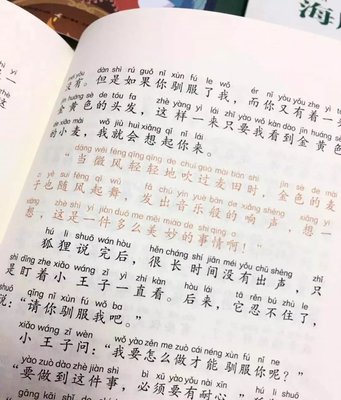 海
dàn shì rú guǒ nǐ xùn fú le wǒ ér nǐ yòu yǒu zhe yì
没有。但是如果你驯服了我，而你又有着一头
jīn huáng sè de tóu fa zhè yàng yì lái zhǐ yào wǒ kàn dào jīn huáng sè
金黄色的头发，这样一来只要我看到金黄色
de xiǎo mài wǒ jiù huì xiǎng qǐ nǐ lái
的小麦，我就会想起你来。
dāng wēi fēng qīng qīng de chuī guo mài tián shí jīn sè de mài
“当微风轻轻地吹过麦田时，金色的麦
zi yě suí fēng qǐ wǔ fā chū yīn yuè bān de xiǎng shēng xiǎng yì
子也随风起舞，发出音乐般的响声，想一
xiǎng zhè shì yí jiàn duō me měi miào de shì qing a
想，这是一件多么美妙的事情啊！”
hú li shuō wán hòu hěn cháng shí jiān méi yǒu chū shēng zhǐ
狐狸说完后，很长时间没有出声，只
shì dīng zhe xiǎo wáng zǐ yì zhí kàn hòu lái tā rěn bú zhù le
是盯着小王子一直看。后来，它忍不住了，
shuō qǐng nǐ xùn fú wǒ ba
说：“请你驯服我吧。”
xiǎo wáng zǐ wèn wǒ yào zěn me zuò cái néng xùn fú nǐ ne
小王子问：“我要怎么做才能驯服你呢？”
yào zuò dào zhè jiàn shì bì xū yào yǒu nài xīn hú li shuō
“要做到这件事，必须要有耐心。”狐狸